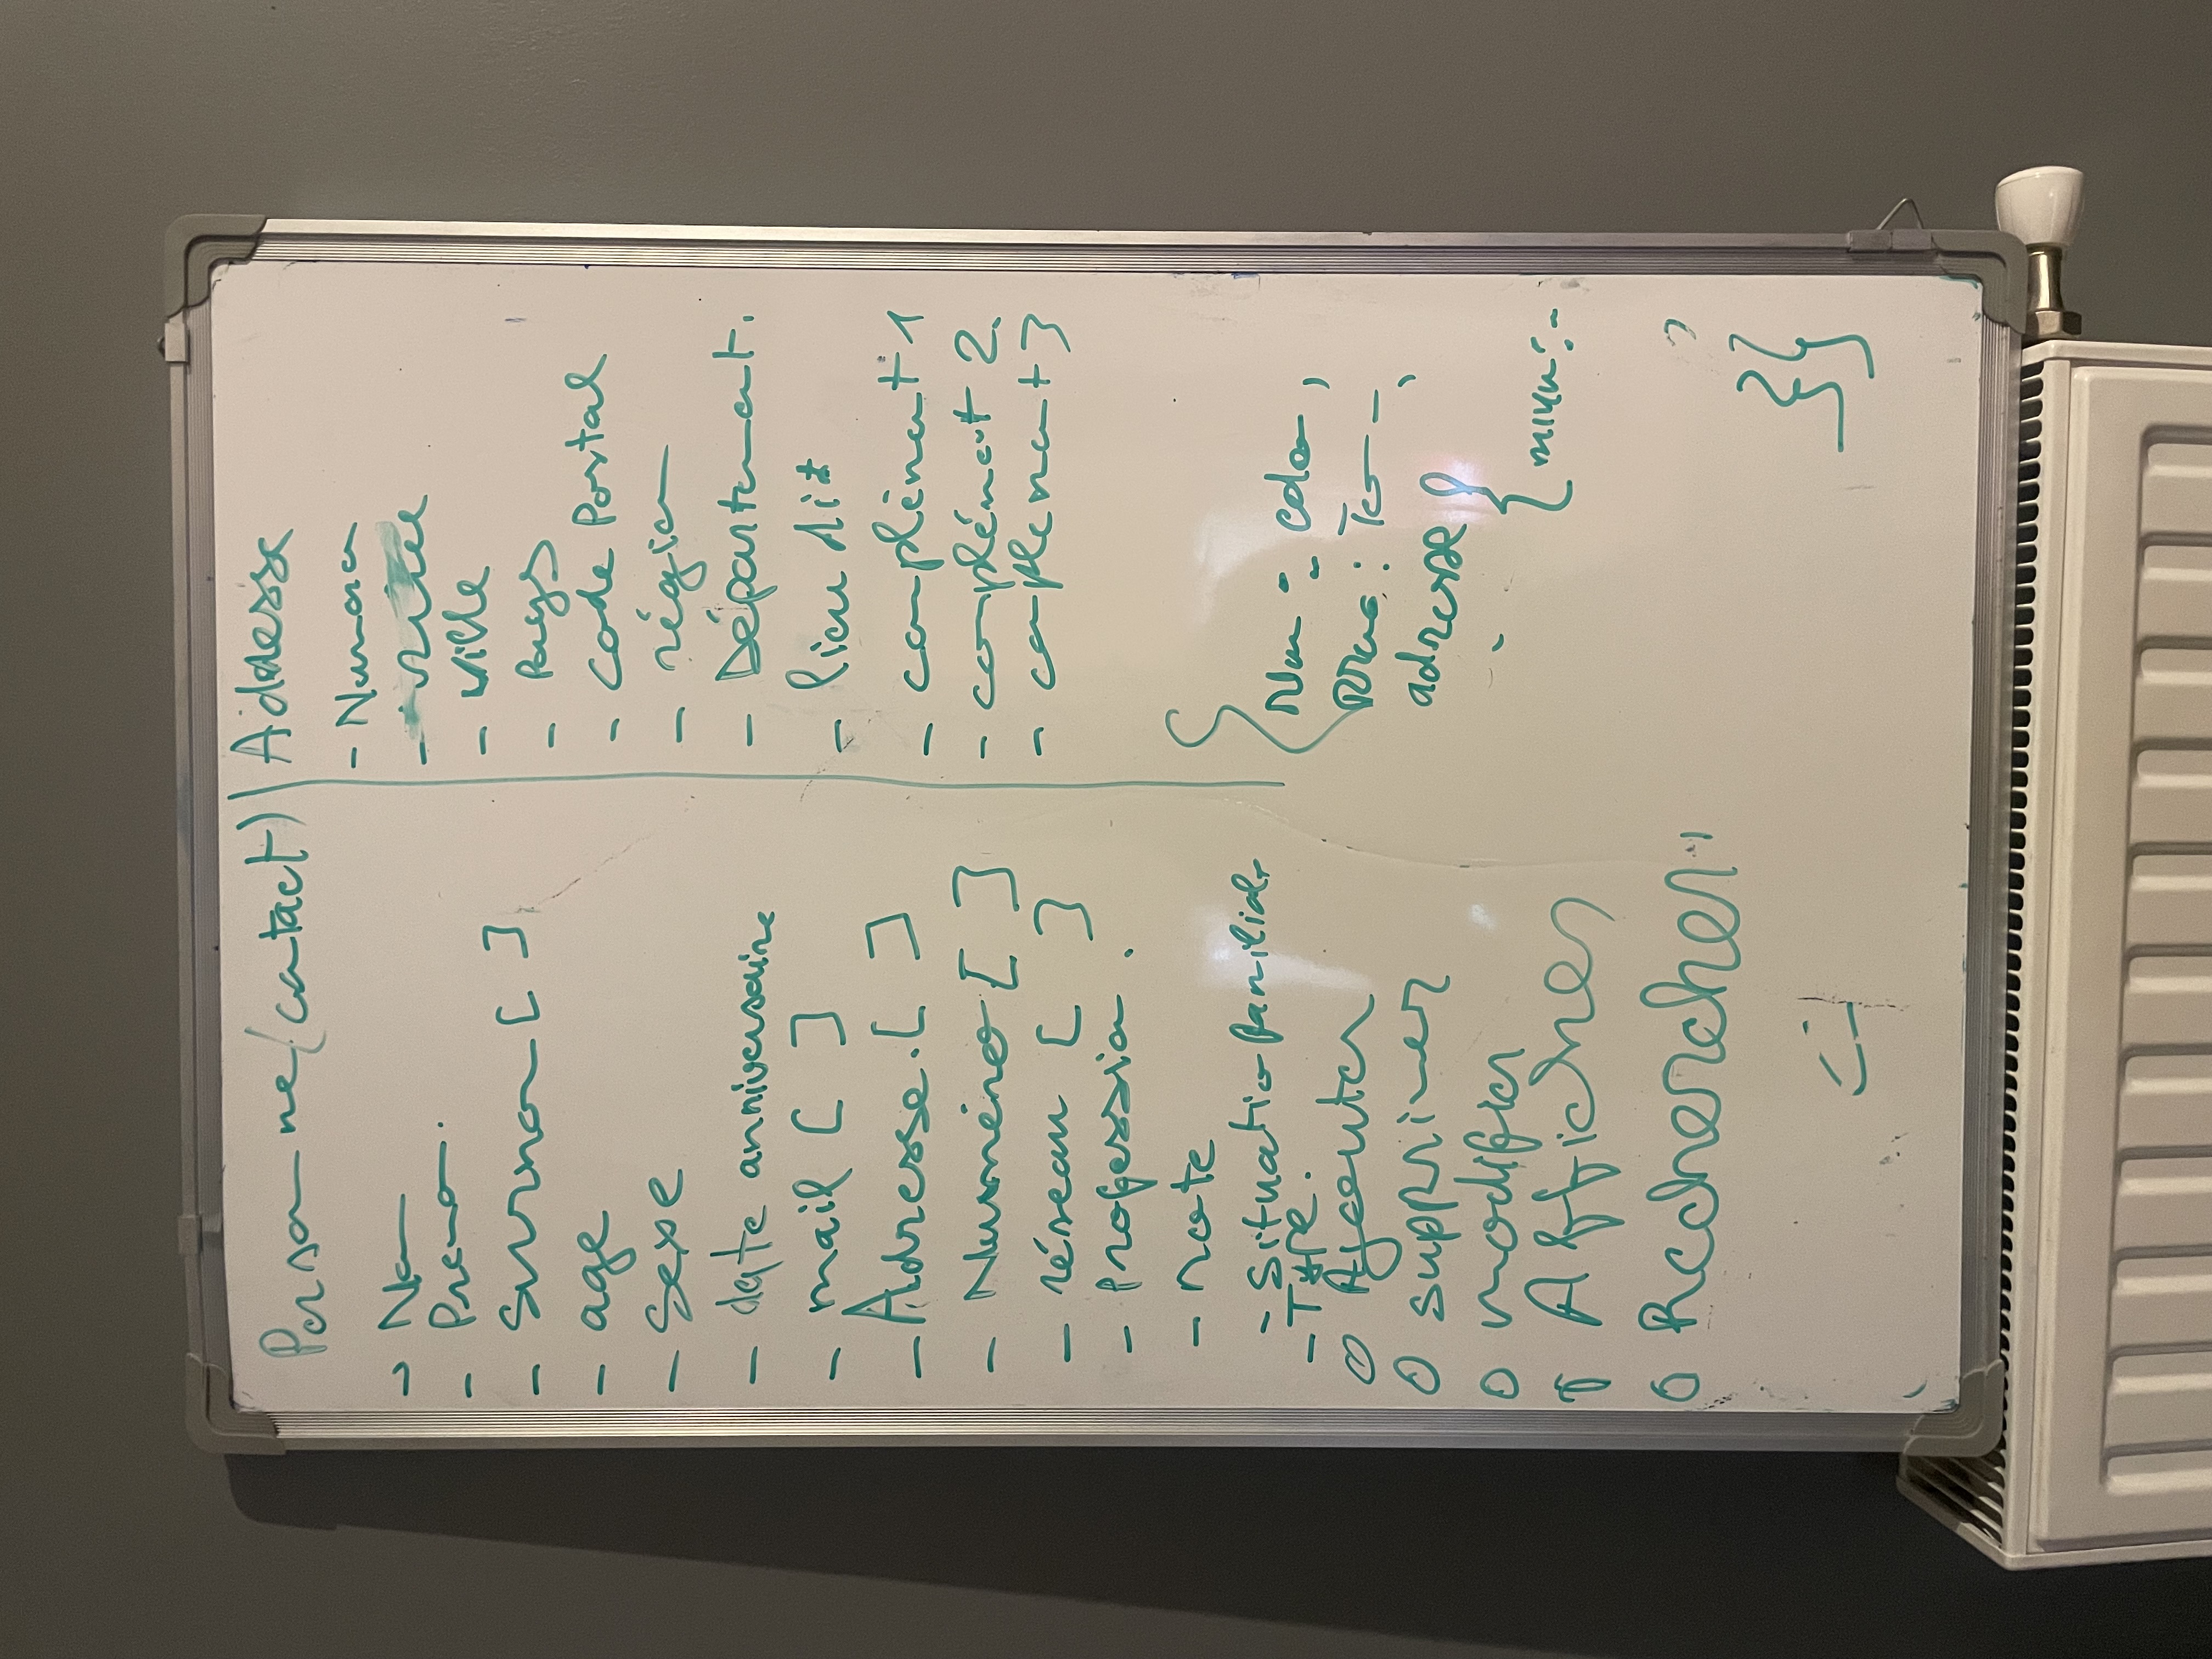 Personne (contact)
- Nom
- Prenom.
- Surnom [ ]
- age
- Sexe
- date anniversaire
- mail [ ]
- Adresse. [ ]
- Numéro [ ]
- réseau [ ]
- Profession.
- note
- Situation familiale
- Type.
O Ajouter
O supprimer
O modifier
O Afficher
O Rechercher
Addesse
- Numero
- rue
- Ville
- Pays
- Code Postal
- région
- Département.
- lieu dit
- complément 1
- complément 2.
- complement 3
{
Nom :
adresse {
{
}}